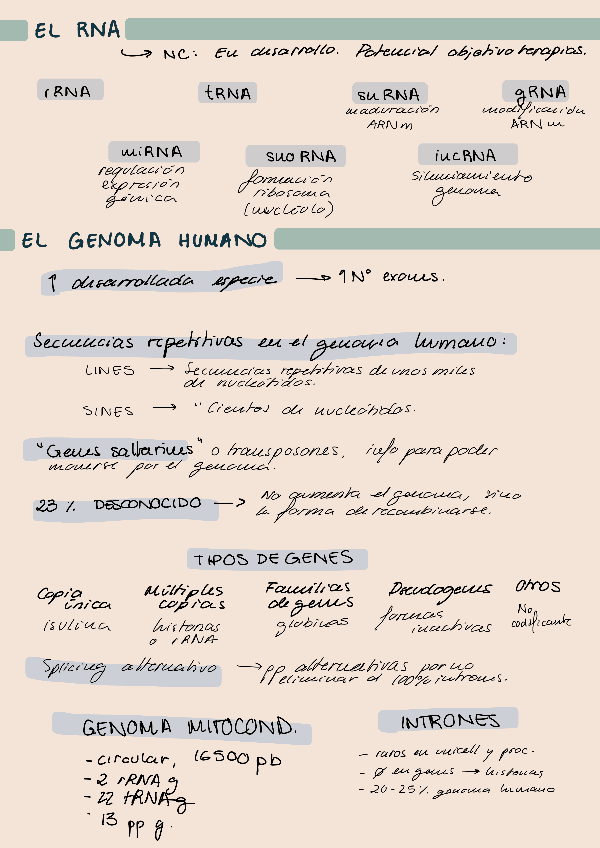 EL RNA
→ NC: En desarrollo. Potencial objetivo terapias.
rRNA tRNA snRNA gRNA
maduración modificación
ARNm ARNm
miRNA snoRNA incRNA
regulación formación silenciamiento
expresión ribosoma genoma
génica (nucléolo)
EL GENOMA HUMANO
↑ desarrollada especie → ↑Nº exones.
Secuencias repetitivas en el genoma humano:
LINES → Secuencias repetitivas de unos miles
de nucleótidos.
SINES → " Cientos de nucleótidos.
"Genes saltarines" o transposones, info para poder
moverse por el genoma.
23% DESCONOCIDO → No aumenta el genoma, sino
la forma de recombinarse.
TIPOS DE GENES
Copia Múltiples Familias Pseudogenes Otros
única copias de genes
isulina histonas globinas formas No
o rRNA inactivas codificante
Splicing alternativo → pp alternativas por no
eliminar el 100% introns.
GENOMA MITOCOND.
- circular, 16500 pb
- 2 rRNA g
- 22 tRNA g
- 13 pp g.
INTRONES
- raros en unicell y proc.
- Ø en genes → histonas
- 20-25% genoma humano